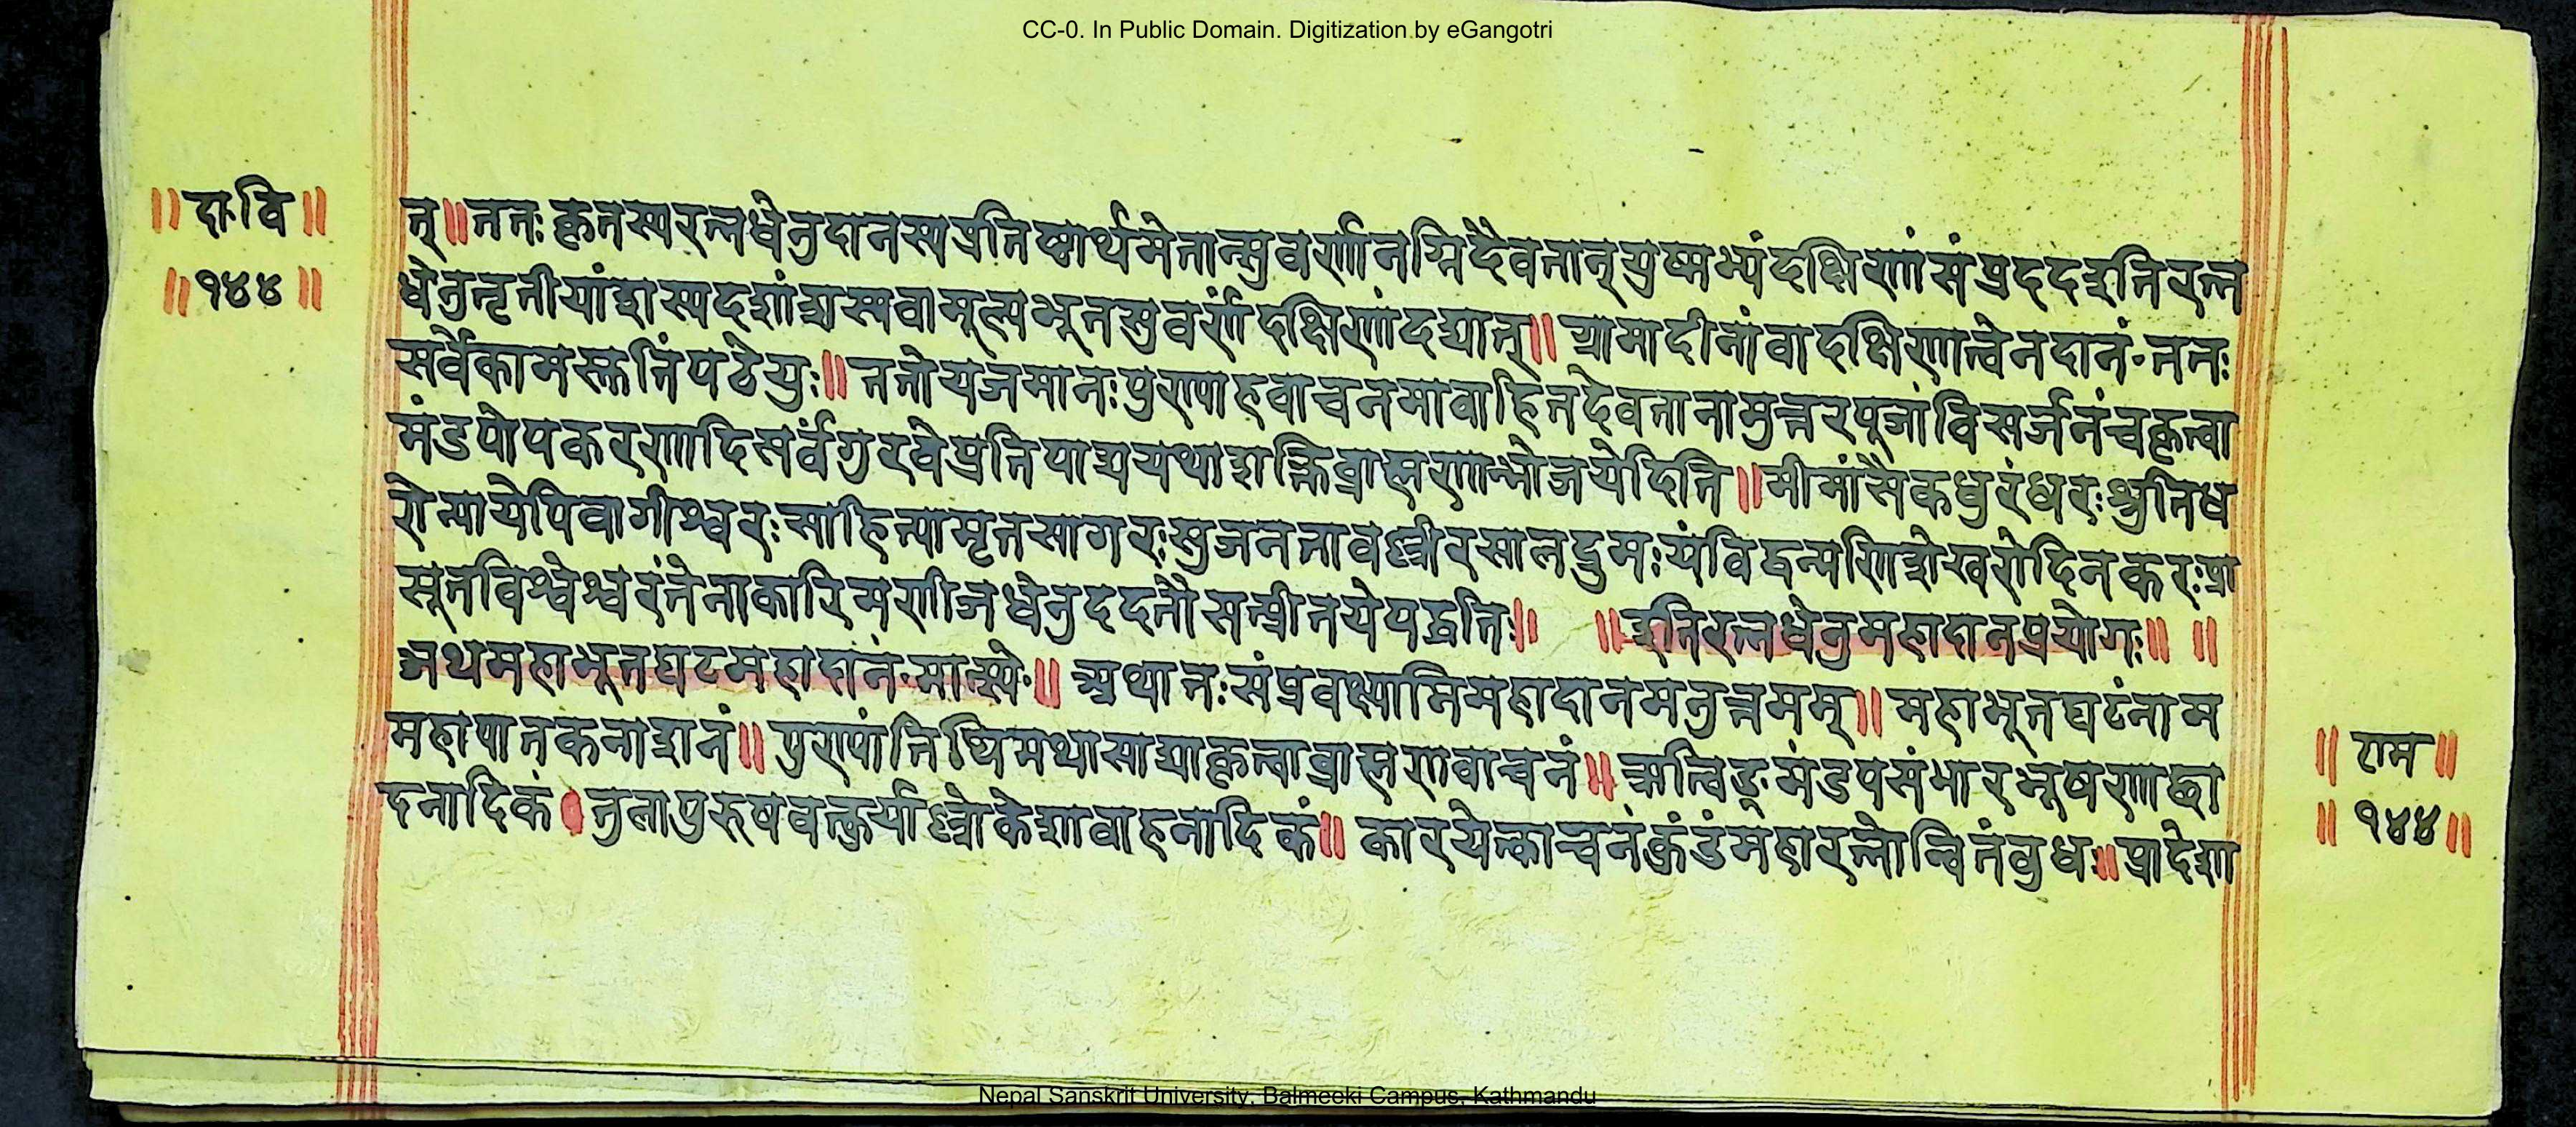 CC-0. In Public Domain. Digitization by eGangotri
॥ दा॰वि ॥
॥ १४४ ॥
त्॥ततः कृतस्यरत्नधेनुदानस्यप्रतिष्ठार्थमेतान्सुवर्णानग्निदैवतान्युष्मभ्यंदक्षिणांसंप्रददइतिरत्न
धेनुतृतीयांशस्यदशांशस्यवामूल्यभूतसुवर्णंदक्षिणांदद्यात्॥ग्रामादीनांवादक्षिणात्वेनदानं॰ततः
सर्वेकामस्तुतिंपठेयुः॥ततोयजमानःपुण्याहवाचनमावाहितदेवतानामुत्तरपूजांविसर्जनंचकृत्वा
मंडपोपकरणादिसर्वंगुरवेप्रतिपाद्ययथाशक्तिब्राह्मणान्भोजयेदिति॥मीमांसैकधुरंधरःश्रुतिध
रोन्यायेपिवागीश्वरःसाहित्यामृतसागरःसुजनतावल्लीरसालद्रुमःयंविद्वन्मणिशेखरोदिनकरःप्रा
सूतविश्वेश्वरंतेनाकारिमणीजधेनुददनौसत्प्रीतयेपद्धतिः॥ ॥इतिरत्नधेनुमहादानप्रयोगः॥ ॥
अथमहाभूतघटमहादानं॰मात्स्ये॰॥ अथातःसंप्रवक्ष्यामिमहादानमनुत्तमम्॥महाभूतघटंनाम
महापातकनाशनं॥पुण्यांतिथिमथासाद्याकृत्वाब्राह्मणवाचनं॥ऋत्विङ्मंडपसंभारभूषणाच्छा
दनादिकं।तुलापुरुषवत्कुर्याल्लोकेशावाहनादिकं॥ कारयेत्काञ्चनंकुंडंमहारत्नोन्वितंबुधः॥प्रादेशा
॥ राम ॥
॥ १४४ ॥
Nepal Sanskrit University, Balmeeki Campus, Kathmandu